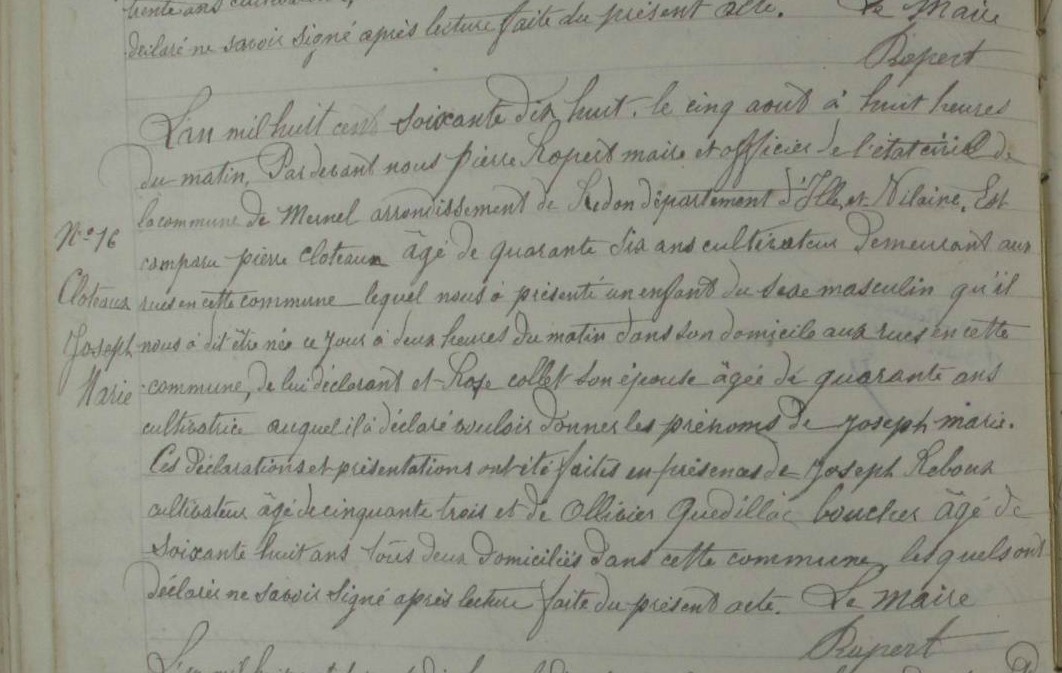 trente ans
déclaré ne savoir signé après lecture faite du présent acte. Le Maire
Ropert
L'an mil huit cent soixante dix huit. le cinq août à huit heures
du matin, Par devant nous pierre Ropert maire et officier de l'état civil de
la commune de Mernel arrondissement de Redon département d'Ille et Vilaine. Est
N° 16
comparu pierre cloteaux âgé de quarante six ans cultivateur demeurant aux
Cloteaux
rues en cette commune lequel nous à présenté un enfant du sexe masculin qu'il
Joseph
nous à dit être née ce jour à deux heures du matin dans son domicile aux rues en cette
Marie
commune, de lui déclarant et Rose collet son épouse âgée de quarante ans
cultivatrice auquel il à déclaré vouloir donner les prénoms de joseph marie.
Ces déclarations et présentations ont été faites en présences de Joseph Reboux
cultivateur âgé de cinquante trois et de Ollivier Quedillac boucher âgé de
soixante huit ans tous deux domiciliés dans cette commune, lesquels ont
déclarés ne savoir signé après lecture faite du présent acte. Le Maire
Ropert
L'an mil huit